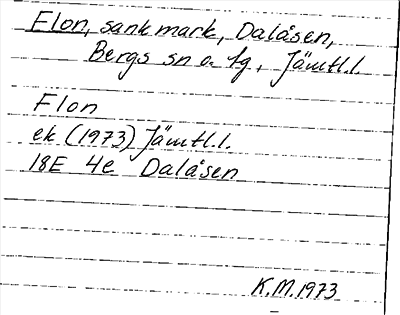 Flon, sankmark, Dalåsen,
Bergs sn o. tg, Jämtl.l.
Flon
ek (1973) Jämtl.l.
18E 4e Dalåsen
K.M. 1973